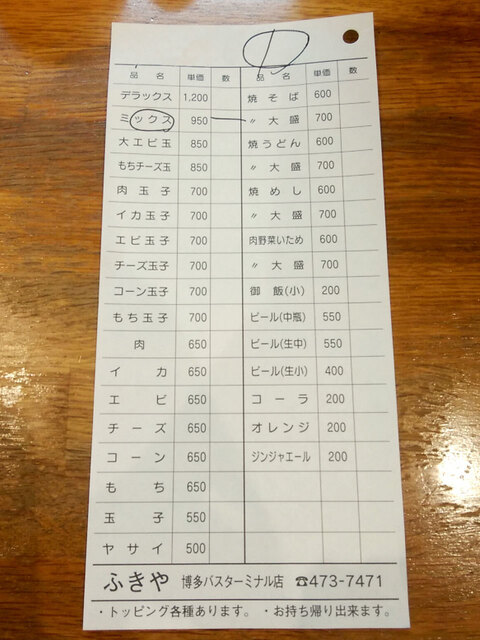 品名 単価 数 品名 単価 数
デラックス 1,200 焼そば 600
ミックス 950 〃大盛 700
大エビ玉 850 焼うどん 600
もちチーズ玉 850 〃大盛 700
肉玉子 700 焼めし 600
イカ玉子 700 〃大盛 700
エビ玉子 700 肉野菜いため 600
チーズ玉子 700 〃大盛 700
コーン玉子 700 御飯(小) 200
もち玉子 700 ビール(中瓶) 550
肉 650 ビール(生中) 550
イカ 650 ビール(生小) 400
エビ 650 コーラ 200
チーズ 650 オレンジ 200
コーン 650 ジンジャエール 200
もち 650
玉子 550
ヤサイ 500
ふきや 博多バスターミナル店 ☎473-7471
・トッピング各種あります。 ・お持ち帰り出来ます。